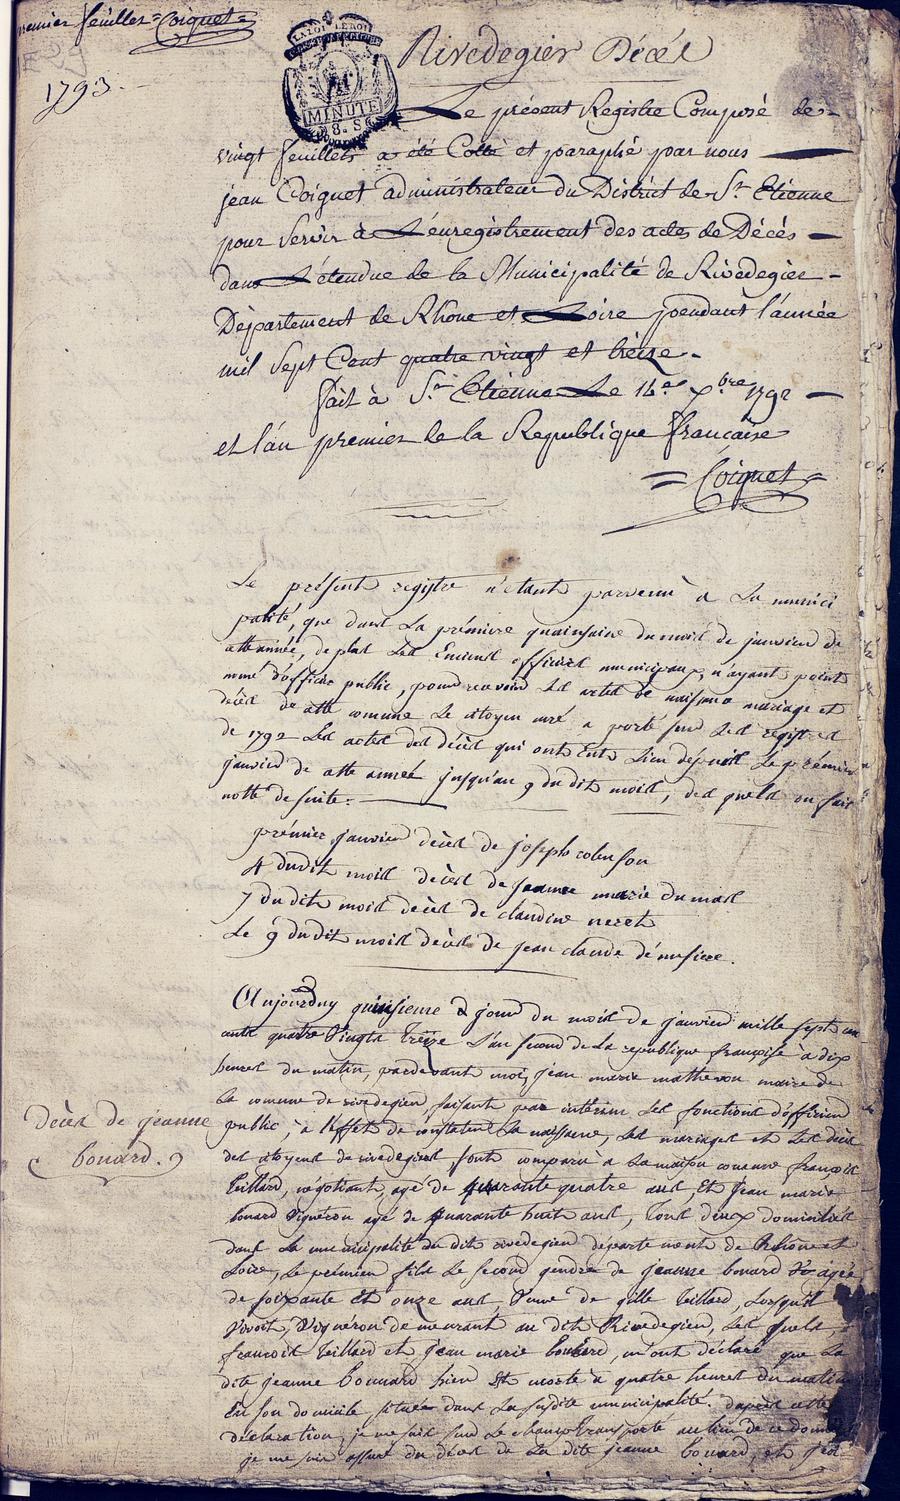 premier feuillet = Coignet =
1793. -
LA LOI LE ROI
MINUTE
8. S
Rivedegier Décès
Le présent Registre Composé de
vingt feuillets a été Cotté et paraphé par nous
jean Coignet administrateur du District de St. Etienne
pour servir à L'enregistrement des actes de Décès
dans L'étendue de la Municipalité de Rivedegier
Département de Rhone et Loire pendant l'année
mil sept Cent quatre vingt et treize.
fait à St. Etienne Le 14 xbre 1792
et l'an premier de la Republique francaise
= Coignet =
Le présent registre n'étant parvenu à La munici
palité, que dans La prémière quainsaine du mois de janvier de
cette année, de plus Les officiers municipaux, n'ayant point
nomé d'officier public, pour recevoir Les actes de naissance mariage et
décès de cette comune Le citoyen curé a porté sur Les registres
de 1792 Les actes des décès qui ont Lieu depuis Le prémier
janvier de cette année jusqu'au 9 dudit mois, des quels on fait
notte de suite.
prémier janvier décès de joseph
4 dudit mois décès de jeanne marie dumas
7 du dit mois décès de claudine neret
Le 9 du dit mois décès de jean claude
décès de jeanne
bonard.
Aujourduy quinsieme jour du mois de janvier mille sept cen
quatre vingts treize L'an second de La republique françoise à dix
heures du matin, pardevant moi, jean marie matheron maire de
La comune de rivedegier, faisant par interim Les fonctions d'officier
public, à l'effet de constater La naissance, Les mariages et Les décès
des citoyens de rivedegier sont comparu à La maison comune françois
teillard, négotiant, agé de quarante quatre ans, Et jean marie
bonard vigneron agé de quarante huit ans, tous deux domiciliés
dans La municipalité du dit rivedegier département de Rhône et
Loire, Le prémier fils Le second gendre de jeanne bonard agée
de soixante et onze ans, veuve de gille teillard, Lorsqu'il
vivoit, vigneron demeurant au dit Rivedegier, Les quels,
francois teillard et jean marie bonard, m'ont déclaré que La
dite jeanne bonnard hier Est morte à quatre heures du matin
En son domicile située dans La susdite municipalité. d'après cette
déclaration, je me suis sur Le champ transporté au lieu de ce domi
je me suis assuré du décès de La dite jeanne bonard, et j'ai